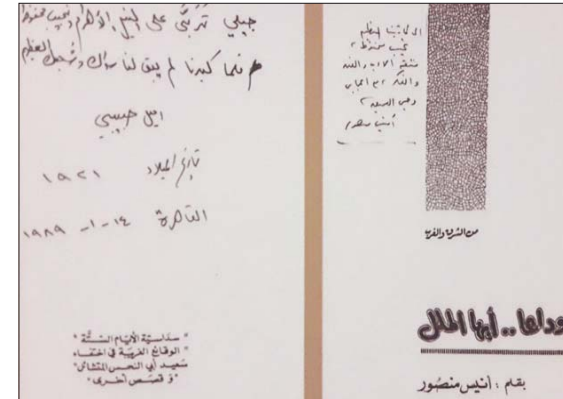 جيلي تربّى على النيل والأهرام ونجيب محفوظ
فلما كبرنا لم يبق لنا سواك وشجبك العظيم
اميل حبيبي
تاريخ الميلاد ١٩٢١
القاهرة ١٤ -١- ١٩٨٩
"سداسيّة الأيّام الستّة"
"الوقائع الغريبة في اختفاء
سَعيد أبي النحس المتشائل"
"و قصص أخرى"
الى كاتبنا العظيم
نجيب محفوظ
الأدب والفن
والفكر
أنيس منصور
من الشرق والغرب
وداعا .. أيها الملل
بقلم : أنيس منصُور